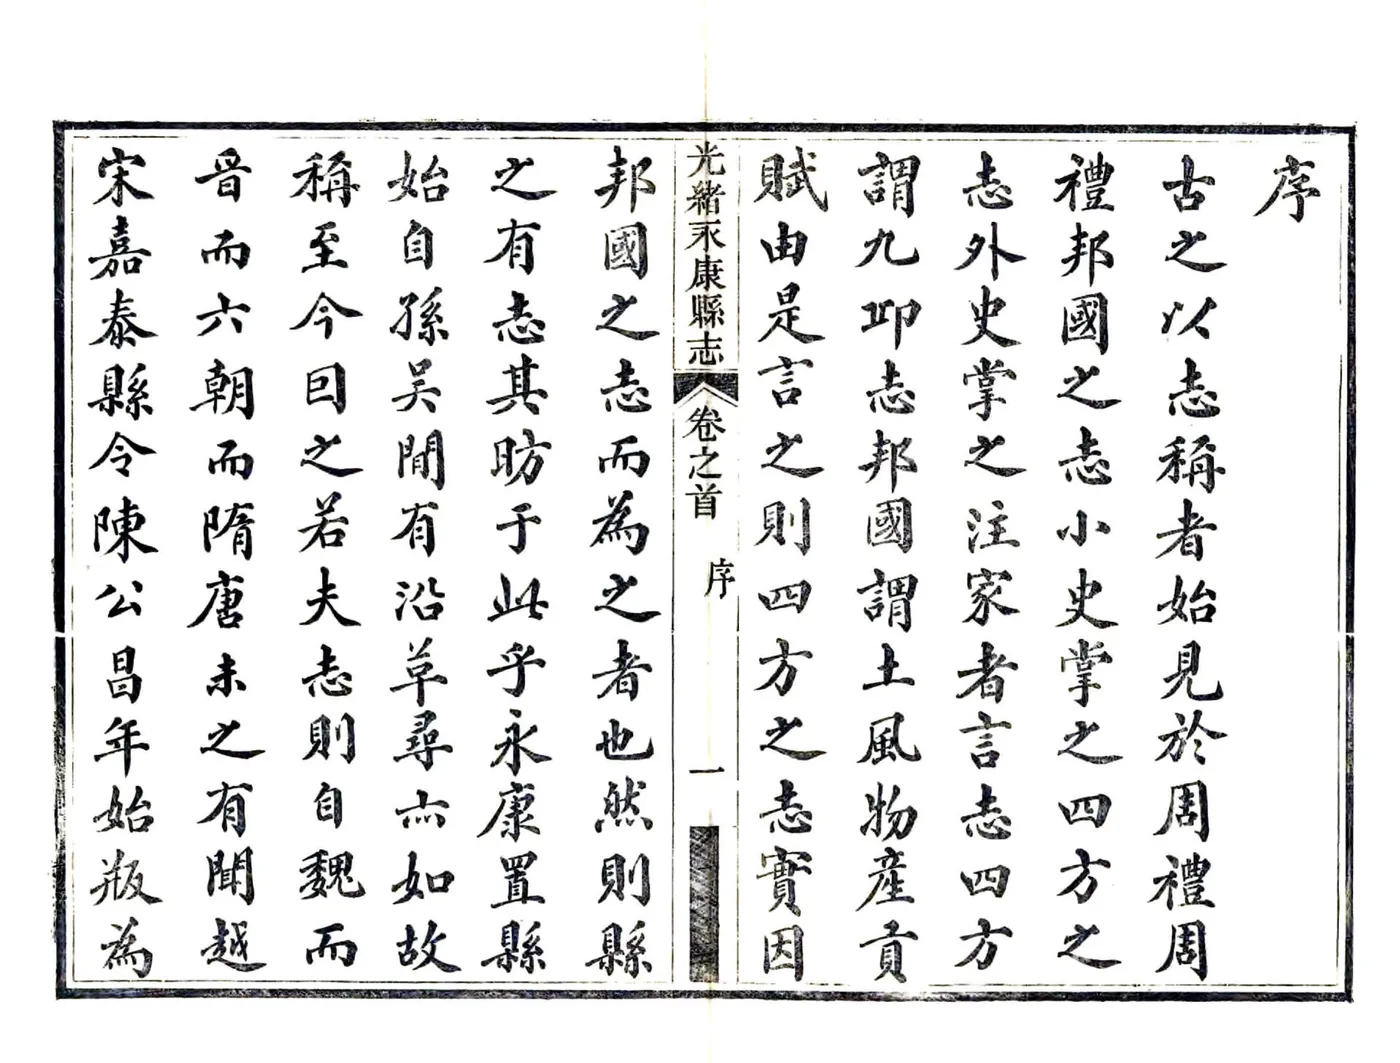 序
古之以志稱者始見於周禮周
禮邦國之志小史掌之四方之
志外史掌之注家者言志四方
謂九邱志邦國謂土風物產貢
賦由是言之則四方之志實因
光緒永康縣志 卷之首 序 一
邦國之志而為之者也然則縣
之有志其昉于此乎永康置縣
始自孫吳間有沿革尋亦如故
稱至今囙之若夫志則自魏而
晉而六朝而隋唐未之有聞越
宋嘉泰縣令陳公昌年始瓶為